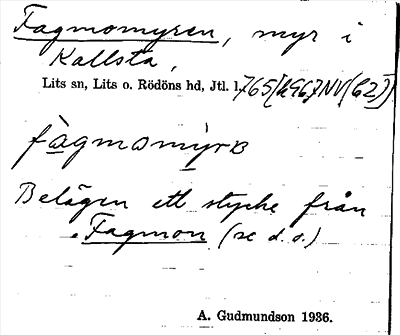 Fagmomyren, myr i
Kallsta,
Lits sn, Lits o. Rödöns hd, Jtl. l.
fàgmomy̆rɐ
Belägen ett stycke från
Fagmon (se d. o.)
A. Gudmundson 1936.